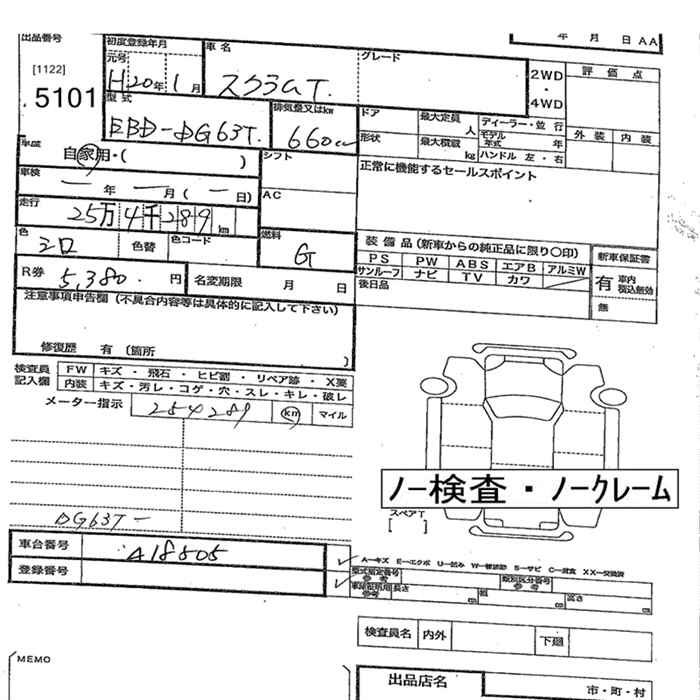 年 月 日 AA
出品番号
[1122]
5101
初度登録年月
元号
H20年 1月
車名
スクラムT.
グレード
2WD
・
4WD
評価点
外装 内装
型式
EBD-DG63T.
排気量又はkw
660cc
ドア
形状
最大定員 人
最大積載 kg
ディーラー・並行
モデル年式 年
ハンドル 左・右
車歴
自家用・( )
シフト
正常に機能するセールスポイント
車検
年 月( 日)
AC
走行
25万4千289 km
色
シロ
色替
色コード
燃料
G
装備品(新車からの純正品に限り○印)
PS PW ABS エアB アルミW
サンルーフ ナビ TV カワ
後日品
新車保証書
有 車内積込無効
無
R券
5,380. 円
名変期限 月 日
注意事項申告欄(不具合内容等は具体的に記入して下さい)
修復歴 有 〔箇所 〕
検査員記入欄
FW キズ・飛石・ヒビ割・リペア跡・X要
内装 キズ・汚レ・コゲ・穴・スレ・キレ・破レ
メーター指示 254289 km マイル
ノー検査・ノークレーム
スペアT
[ ]
DG63T-
車台番号 418805
登録番号
A-キズ E-エクボ U-凹み W-補修跡 S-サビ C-腐食 XX-交換済
型式指定番号
参考
類別区分番号
参考
長さ cm
幅 cm
高さ cm
検査員名 内外 下廻
MEMO
出品店名
市・町・村